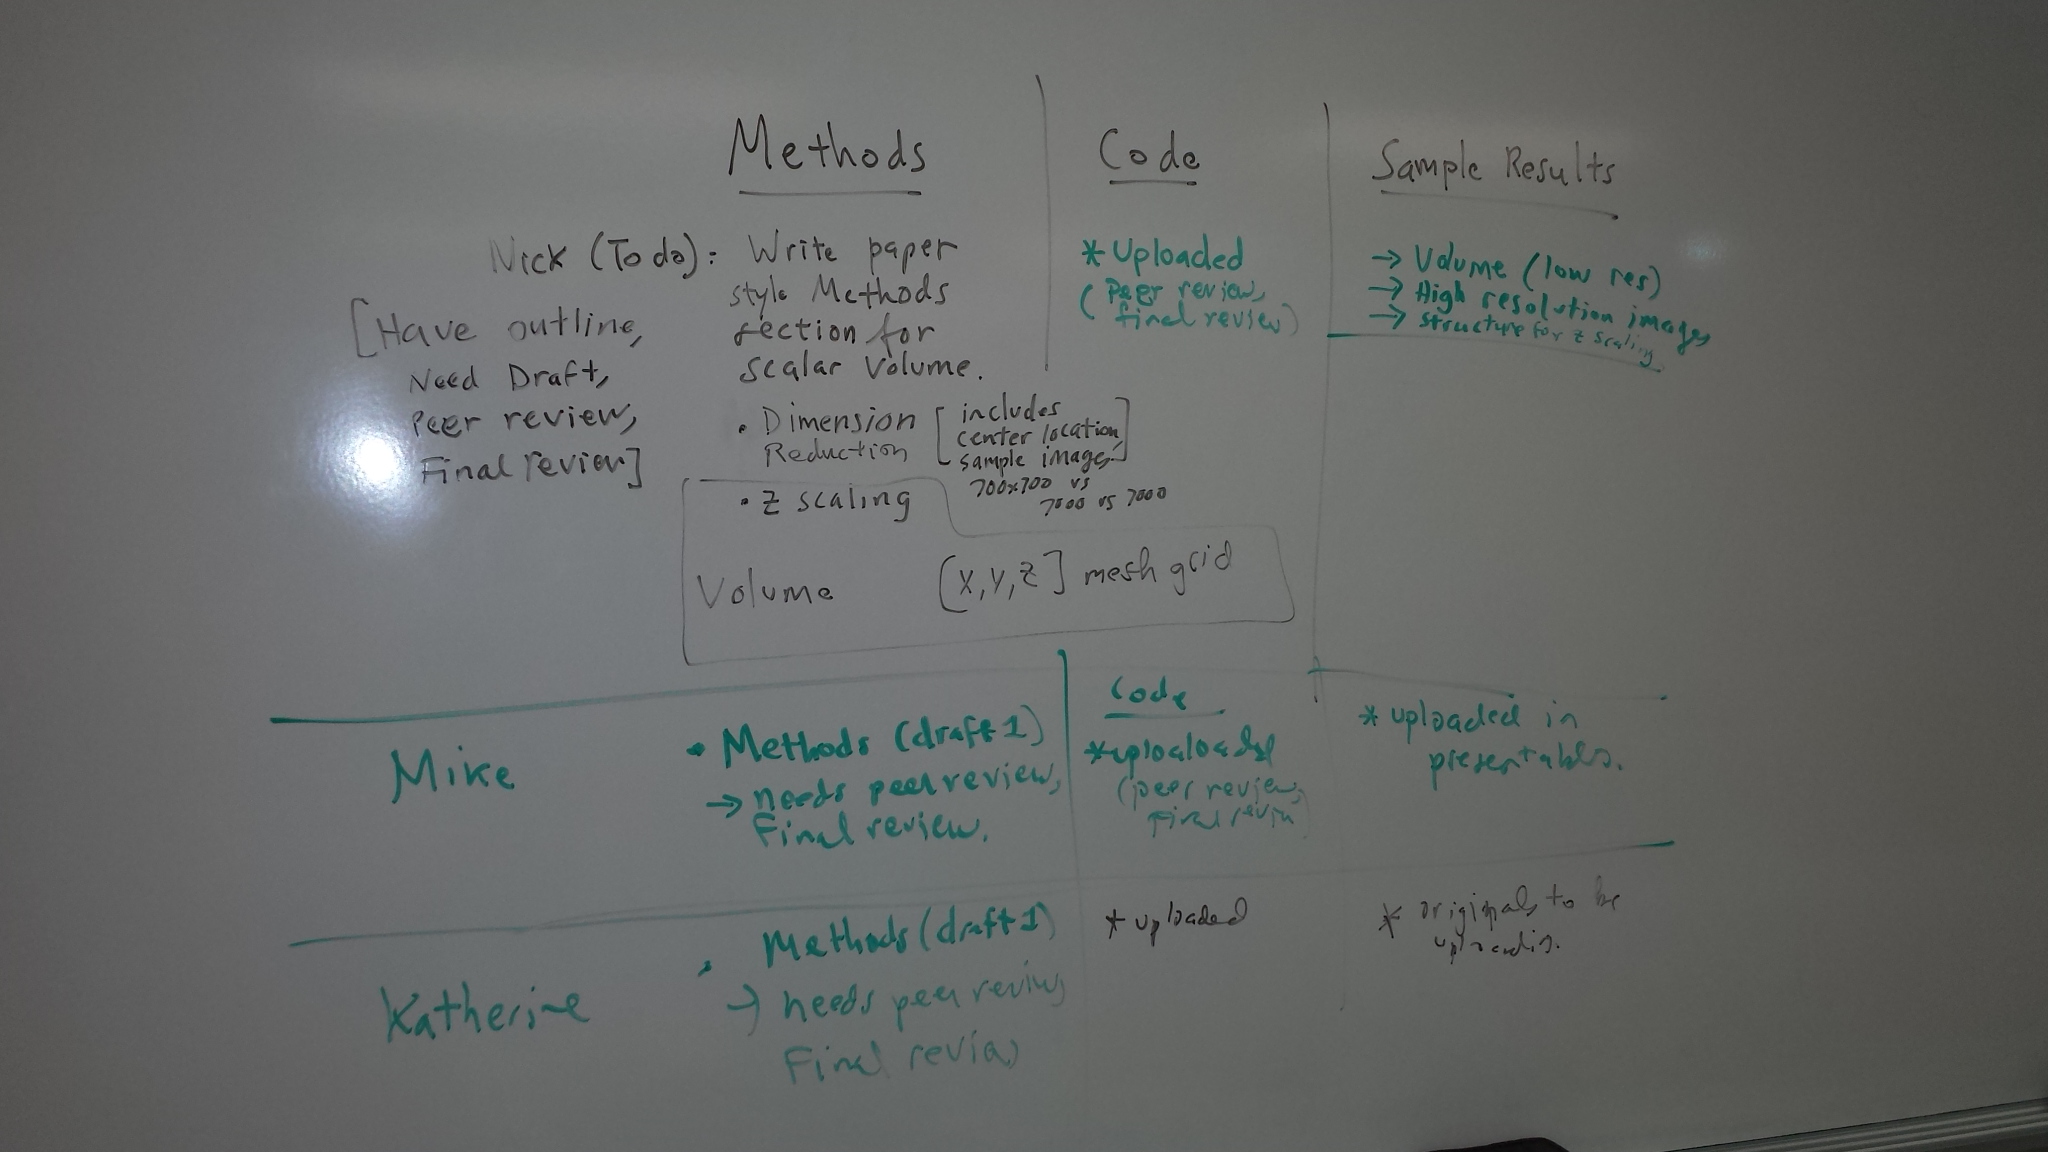 Methods
Code
Sample Results
Nick (To do):
[Have outline,
Need Draft,
Peer review,
Final review]
Write paper
style Methods
section for
scalar volume.
• Dimension
Reduction
[includes
center location,
sample images]
700x700 vs
7000 vs 7000
• z scaling
Volume [X,Y,Z] mesh grid
* Uploaded
(Peer review,
final review)
→ Volume (low res)
→ High resolution images
→ structure for z scaling
Mike
• Methods (draft 1)
→ needs peer review,
Final review.
Code
* uploaloaded
(peer review,
Final review)
* uploaded in
presentables.
Katherine
• Methods (draft 1)
→ needs peer review,
Final review
* uploaded
* originals to be